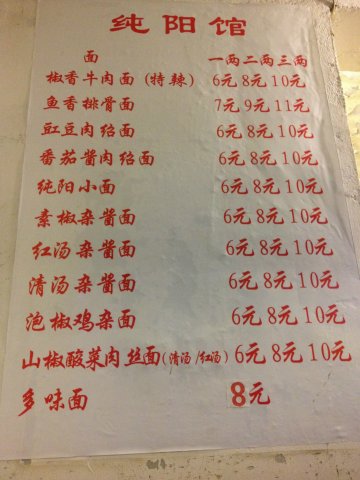 纯阳馆
面 一两二两三两
椒香牛肉面(特辣) 6元 8元 10元
鱼香排骨面 7元 9元 11元
豇豆肉绍面 6元 8元 10元
番茄酱肉绍面 6元 8元 10元
纯阳小面 6元 8元 10元
素椒杂酱面 6元 8元 10元
红汤杂酱面 6元 8元 10元
清汤杂酱面 6元 8元 10元
泡椒鸡杂面 6元 8元 10元
山椒酸菜肉丝面(清汤/红汤) 6元 8元 10元
多味面 8元